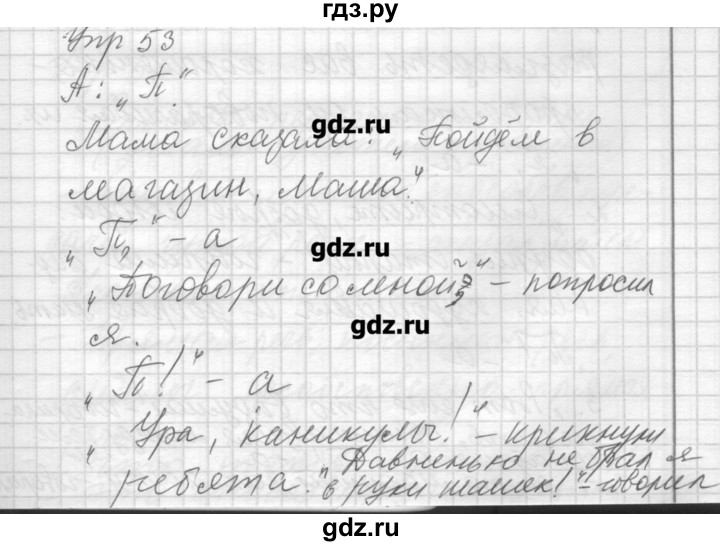 гдз.ру
Упр 53
А: „П."
gdz.ru
Мама сказала: „Пойдём в
магазин, Маша".
„П," – а
gdz.ru
„Поговори со мной", – попросил
gdz.ru
я.
„П!" – а
gdz.ru
„Ура, каникулы!" – крикнули
ребята. „Давненько не брал я
в руки шашек!" – говорил
gdz.ru